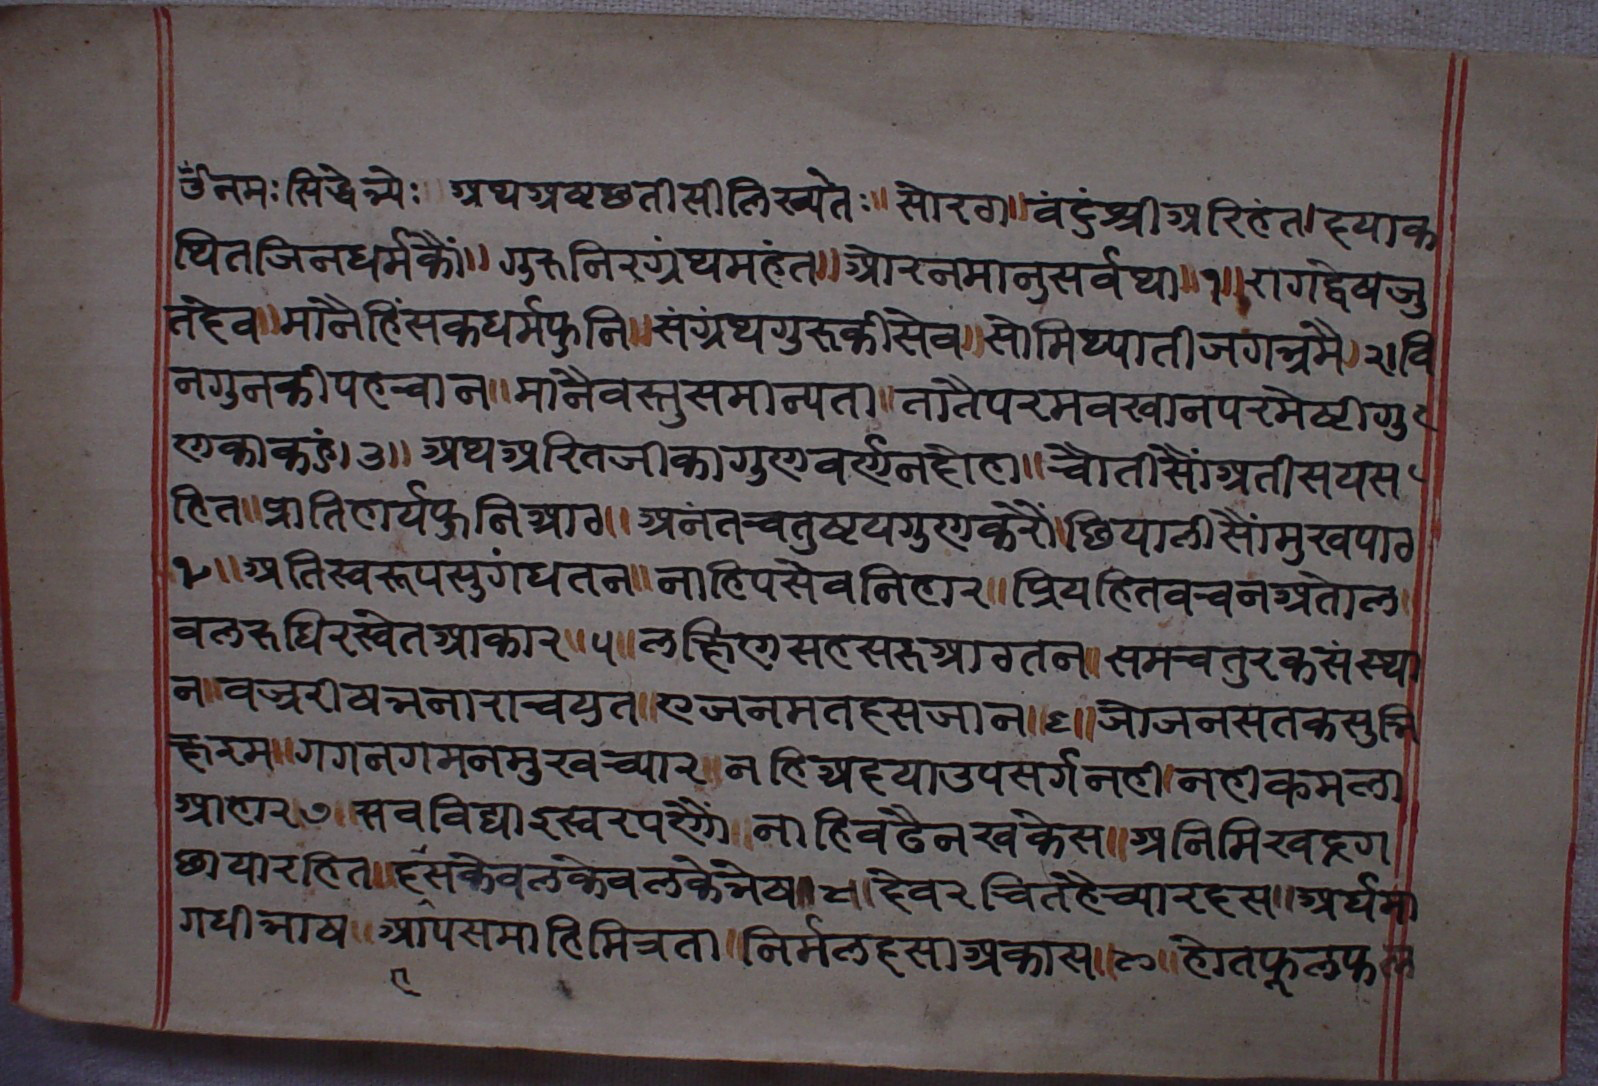 ॐनमःसिद्धेभ्येः अथअष्टछतीसीलिख्यतेः॥ सोरठा॥ वंदुंश्रीअरिहंत।दयाक
थितजिनधर्मकौं॥ गुरुनिरग्रंथमहंत॥ औरनमानुसर्वथा॥१॥ रागद्वेषजु
तदेव॥ मांनैहिंसकधर्मफुनि॥ संग्रंथगुरुकीसेव॥ सोमिथ्यातीजगभ्रमै॥२।वि
नगुनकीपहचान॥ मानैवस्तुसमान्यता॥ तातैपरमवखानपरमेष्टीगु
णकाकहुं।३॥ अथअरितजीकागुणवर्णनदोहा॥ चौतीसौंअतीसयस
हित॥ प्रातिहार्यफुनिआठ॥ अनंतचतुष्टयगुणकरौं॥ छियालीसौंमुखपाठ
४॥ अतिस्वरूपसुगंधतन॥ नाहिपसेवनिहार॥ प्रियहितवचनअतोल॥
वलरुधिरस्वेतआकार॥५॥ लह्निणसहसरुआठतन॥ समचतुरकसंस्था
न॥ वज्ररीषभनाराचयुत॥ एजनमतदसजान॥६॥ जोजनसतकसुभि
हरम॥ गगनगमनमुखच्यार॥ नहिअदयाउपसर्गनही।नहीकमला
आहार७॥ सवविद्याइस्वरपणौं॥ नाहिवढैनखकेस॥ अनिमिखद्रग
छायारहित॥ दसकेवलकेवलकेभेष॥८॥ देवरचितहैच्यारदस॥ अर्धमा
गधीभाष॥ आपसमाहिमित्रता॥ निर्मलदसाअकास॥९॥ होतफूलफल